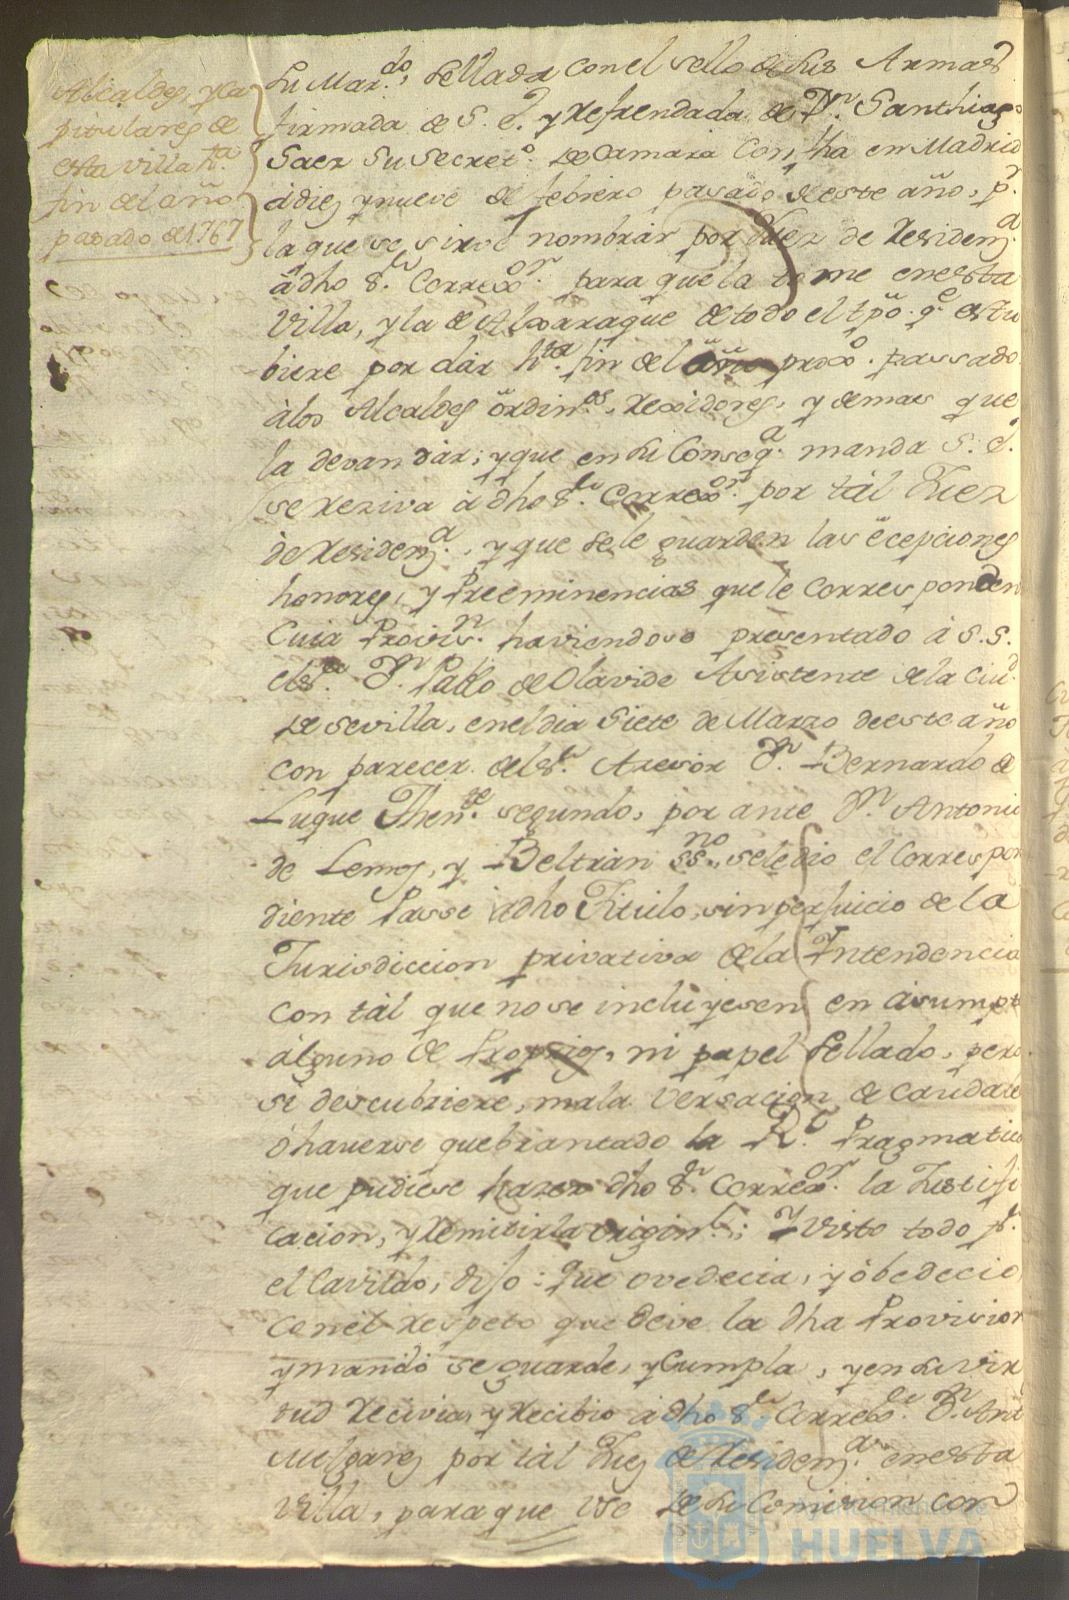 Alcaldes, y Ca
pitulares de
esta villa hta.
fin del año
pasado de 1767
Su Mardo, sellada con el sello de sus Armas
firmada de S. E. y Refrendada de Dn. Santhiago
Saez su secreto. de Camara con fha en Madrid
á diez y nueve de febrero pasado de este año, pr.
la que se sirve nombrar por Juez de Residena.
á dho Sr. Correxor. para que la tome en esta
Villa, y la de Aljaraque de todo el tpõ. qe. estu
biere por dar hta. fin del año proxo. passado
álos Alcaldes ordinos. Rexidores, y demas que
la devan dar; y que en su Conseqa. manda S. E.
se Reziva á dho Sr. Correxor. por tál Juez
de Residena., y que se le guarden las ecepciones
honores, y Preeminencias que le corresponden
Cuia Provisn. haviendose presentado á S. S.
el Sr. Dn. Pablo de Olavide Asistente de la Ciud.
de Sevilla, en el dia Siete de Marzo de este año
con parecer del Sr. Azesor Dn. Bernardo de
Luque Thente. segundo, por ante Dn. Antonio
de Lemos, y Beltran ssno., se le dio el Correspon
diente Passe ádho Titulo, sin perjuicio de la
Jurisdiccion privativa de la Intendencia
con tál que no se incluyesen en ásumpto
álguno de Proprios, ni papel sellado, pero
si descubriere, mala versacion de caudales
ó haverse quebrantado la Rl. Pragmatica
que pudiese hazer dho Sr. Correxor. la Justifi
cacion, y Remitirla originl.; Y Visto todo pr.
el Cavildo, dijo: Que ovedecia, y óbedecio
con el respeto que deve la dha Provision
y mandó se guarde, y Cumpla, y en su vir
tud Recivia, y Recibio á dho Sr. Correxor. Dn. Antt
Melgarez por tál Juez de Residena. en esta
Villa, para que Use de su Comision con
Ayuntamiento de
HUELVA